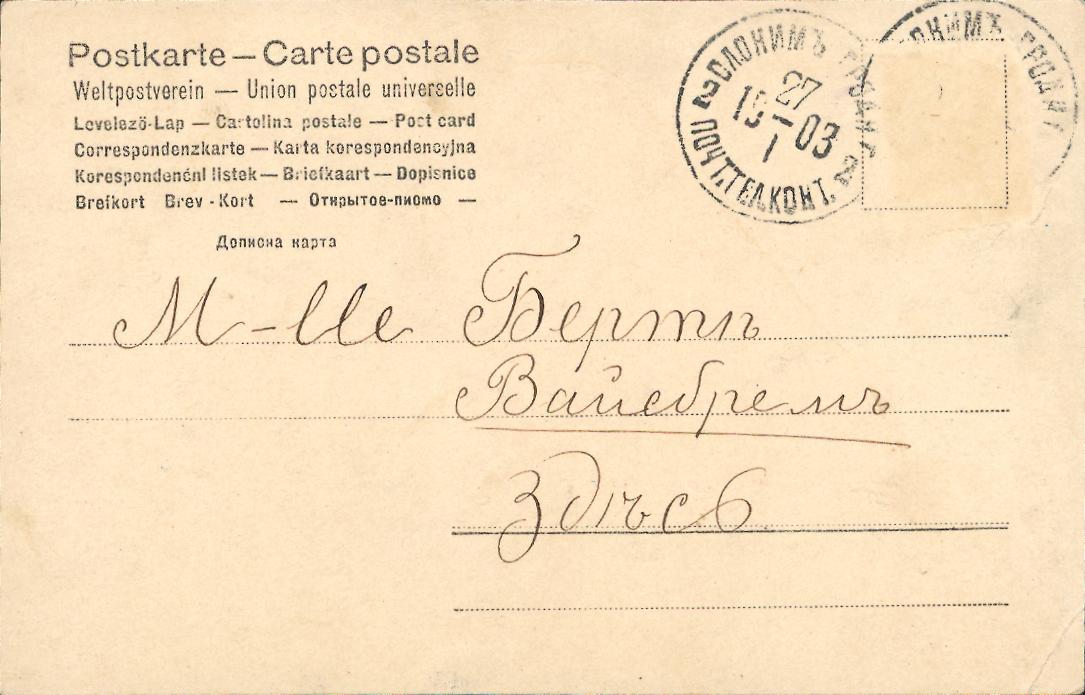 Postkarte — Carte postale
Weltpostverein — Union postale universelle
Levelező-Lap — Cartolina postale — Post card
Correspondenzkarte — Karta korespondencyjna
Korespondenční lístek — Briefkaart — Dopisnice
Brefkort Brev-Kort — Открытое-письмо —
Дописна карта
СЛОНИМЪ ГРОДН. Г.
27
19–03
I
2 ПОЧТ. ТЕЛ. КОНТ. 2
ОНИМЪ ГРОДН Г
M-lle Берти
Вайсбремъ
Здѣсь